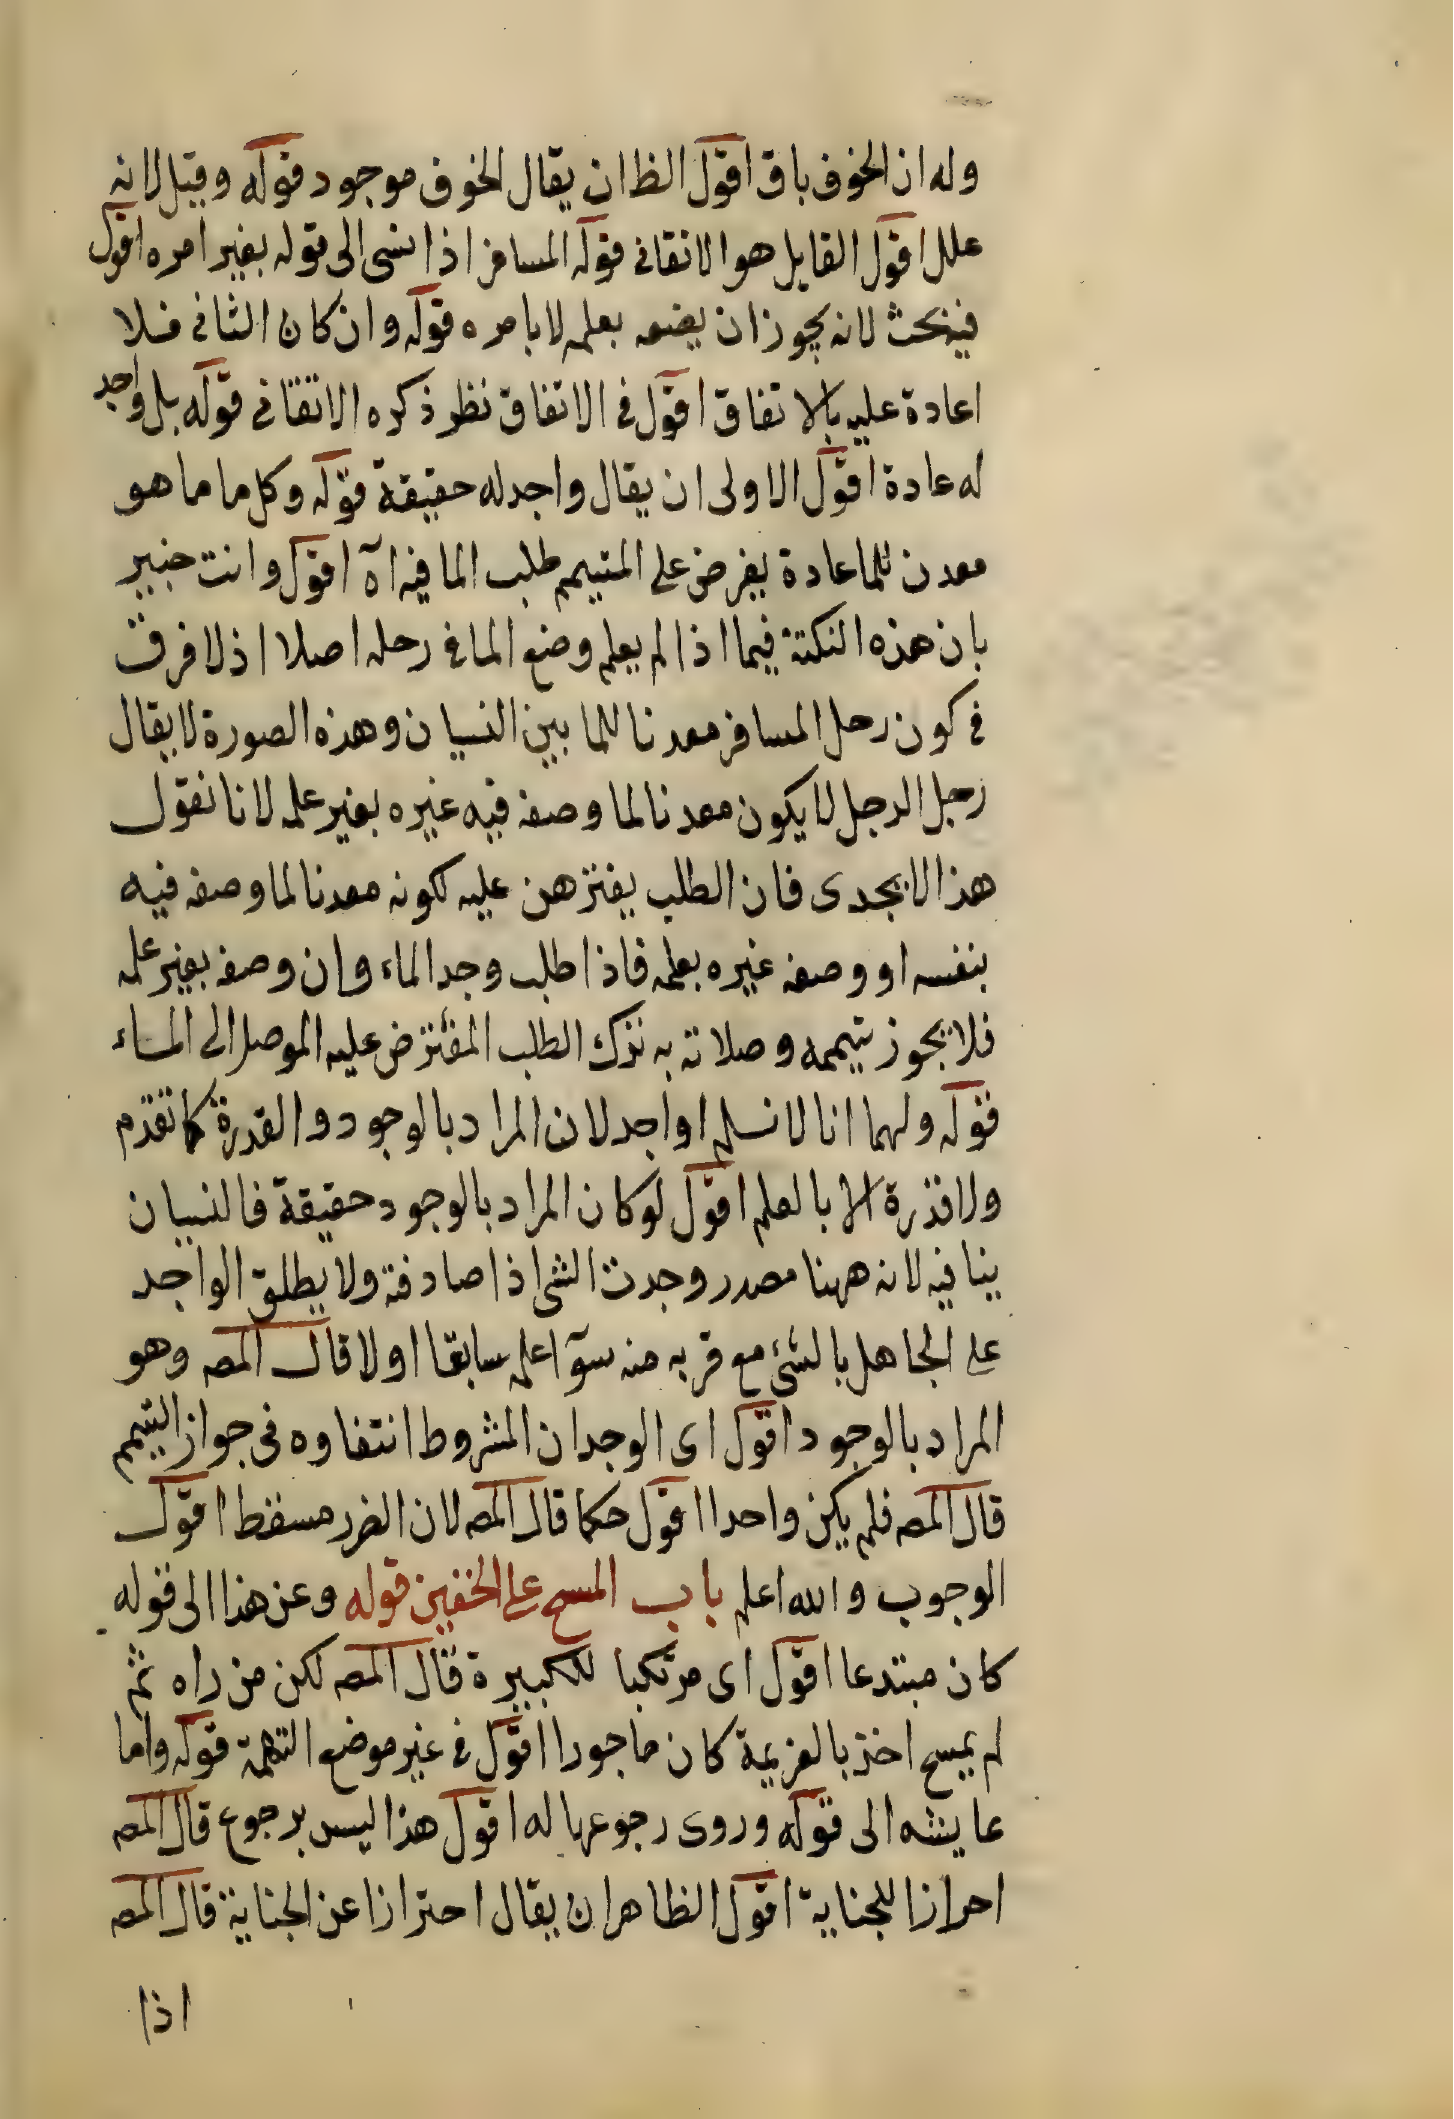 وله ان الخوف باق اقول الظ ان يقال الخوف موجود قوله وقيل لانه
علل اقول القايل هو الاتقانى قوله المسافر اذا نسى الى قوله بغير امره اقول
فيه بحث لانه يجوز ان يضعه بعلمه لا بامره قوله وان كان الثانى فلا
اعادة عليه بالاتفاق اقول فى الاتفاق نظر ذكره الاتقانى قوله بل واجد
له عادة اقول الاولى ان يقال واجد له حقيقة قوله وكل ما ما هو
معدن للما عادة يفرض على المتيمم طلب الما فيه اه اقول وانت خبير
بان هذه النكتة فيما اذا لم يعلم وضع الما فى رحله اصلا اذ لا فرق
فى كون رحل المسافر معدنا للما بين النسيان وهذه الصورة لا يقال
رحل الرجل لا يكون معدنا لما وضعه فيه غيره بغير علمه لانا نقول
هذا لا يجدى فان الطلب يفترض عليه لكونه معدنا لما وضعه فيه
بنفسه او وضعه غيره بعلمه فاذا طلب وجد الماء وان وضعه بغير علمه
فلا يجوز تيممه وصلاته به بترك الطلب المفترض عليه الموصل الى الماء
قوله ولهما انا لا نسلم اواجد لان المراد بالوجود والقدرة كما تقدم
ولا قدرة الا بالعلم اقول لو كان المراد بالوجود حقيقة فالنسيان
ينافيه لانه ههنا مصدر وجدت الشى اذا صادفته ولا يطلق الواجد
على الجاهل بالشئ مع قربه منه سوآ علمه سابقا اولا قال المصـ وهو
المراد بالوجود اقول اى الوجدان المشروط انتفاوه فى جواز التيمم
قال المصـ فلم يكن واحدا اقول حكما قال المصـ لان الضرر مسقط اقول
الوجوب والله اعلم باب المسح على الخفين قوله وعن هذا الى قوله
كان مبتدعا اقول اى مرتكبا للكبيرة قال المصـ لكن من راه ثم
لم يمسح اخذ بالعزيمة كان ماجورا اقول فى غير موضع التهمة قوله واما
عايشه الى قوله وروى رجوعها له اقول هذا ليس برجوع قال المصـ
احرازا للجناية اقول الظاهر ان يقال احترازا عن الجناية قال المصـ
اذا